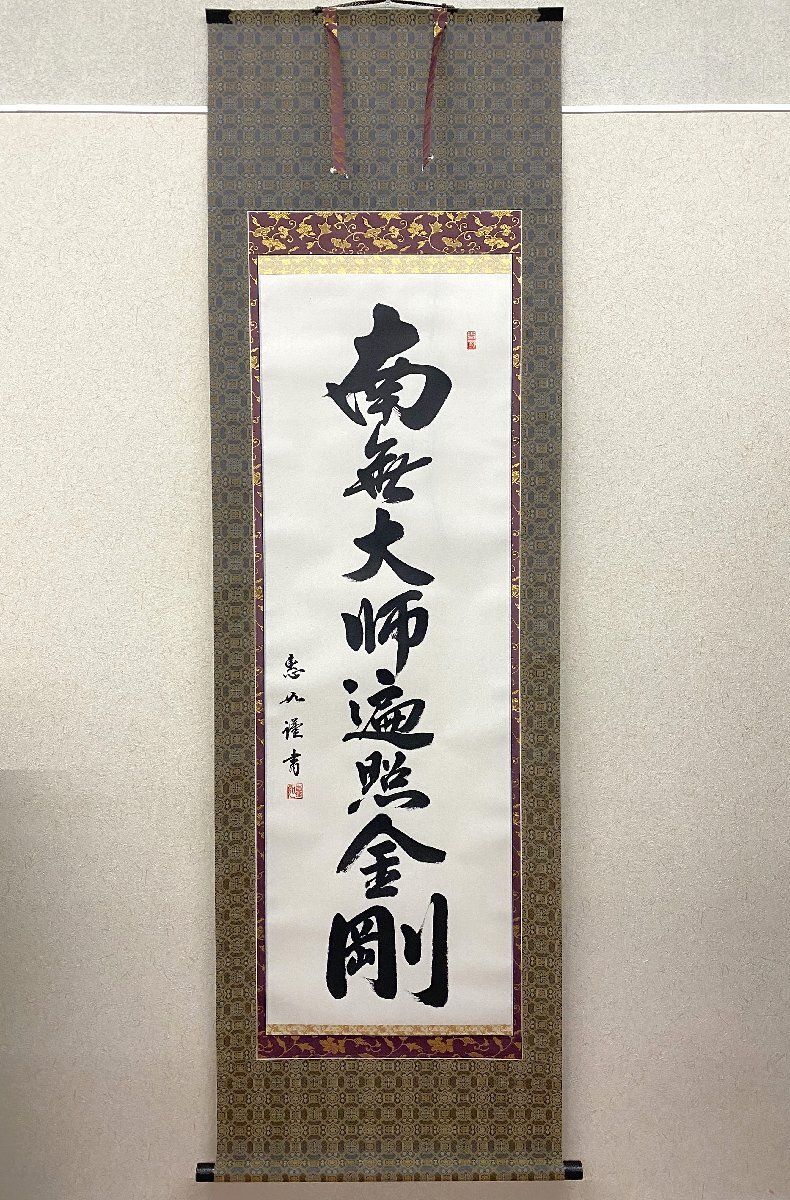 南無大師遍照金剛
恵如謹書